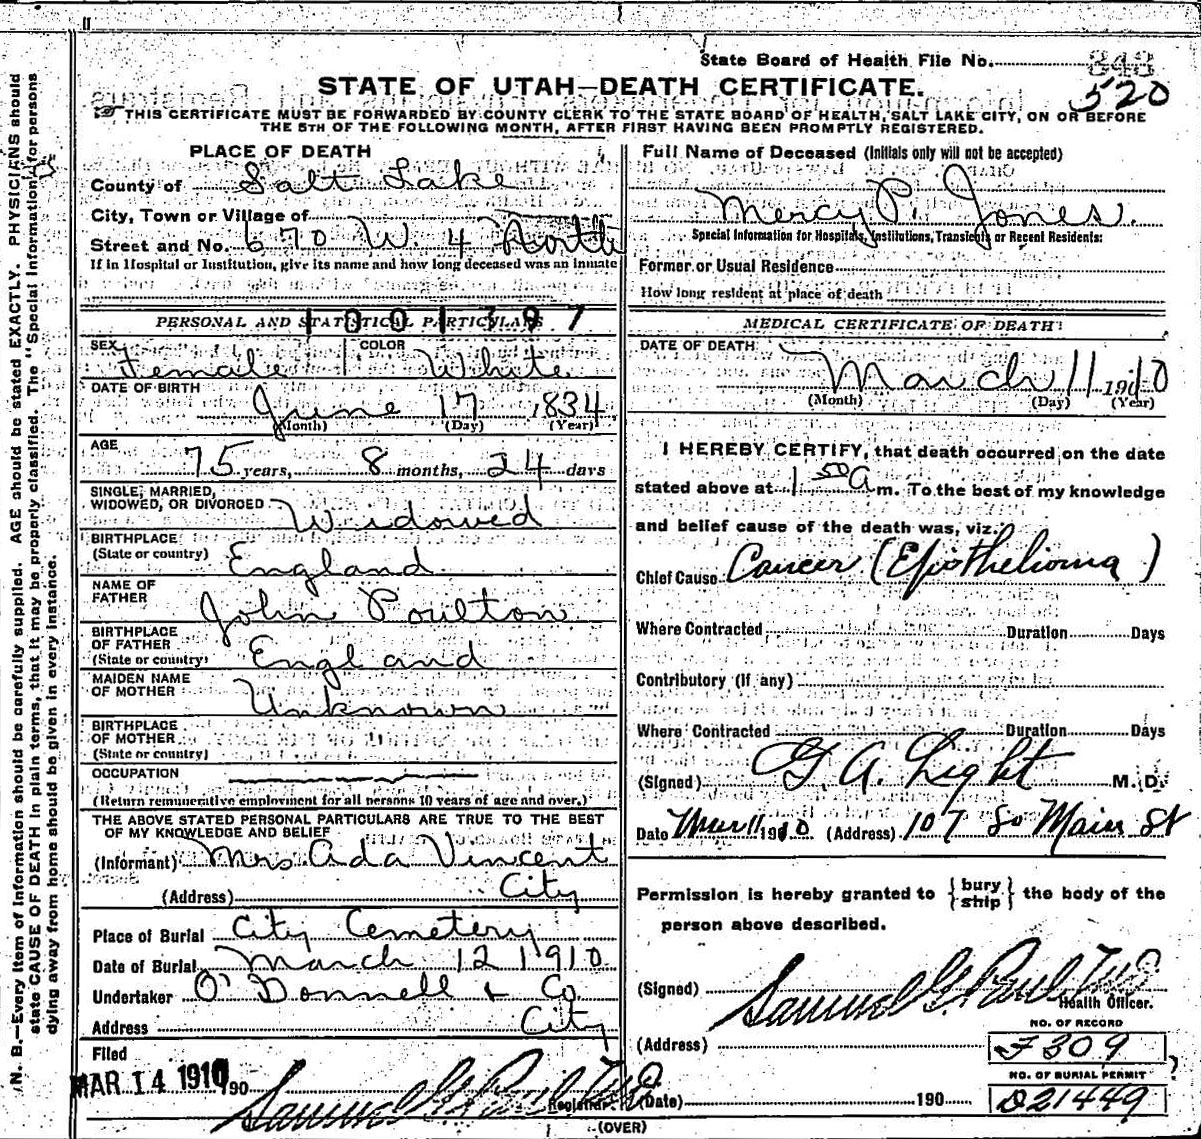 State Board of Health File No. 343
520
STATE OF UTAH—DEATH CERTIFICATE.
THIS CERTIFICATE MUST BE FORWARDED BY COUNTY CLERK TO THE STATE BOARD OF HEALTH, SALT LAKE CITY, ON OR BEFORE
THE 5TH OF THE FOLLOWING MONTH, AFTER FIRST HAVING BEEN PROMPTLY REGISTERED.
PLACE OF DEATH
County of Salt Lake
City, Town or Village of
Street and No. 670 W. 4 North
If in Hospital or Institution, give its name and how long deceased was an inmate
1001397
PERSONAL AND STATISTICAL PARTICULARS
SEX Female COLOR White
DATE OF BIRTH
June 17, 1834
(Month) (Day) (Year)
AGE
75 years, 8 months, 24 days
SINGLE, MARRIED,
WIDOWED, OR DIVORCED Widowed
BIRTHPLACE
(State or country) England
NAME OF
FATHER John Poulton
BIRTHPLACE
OF FATHER
(State or country) England
MAIDEN NAME
OF MOTHER Unknown
BIRTHPLACE
OF MOTHER
(State or country)
OCCUPATION
(Return remunerative employment for all persons 10 years of age and over.)
THE ABOVE STATED PERSONAL PARTICULARS ARE TRUE TO THE BEST
OF MY KNOWLEDGE AND BELIEF
(Informant) Mrs Ada Vincent
(Address) City
Place of Burial City Cemetery
Date of Burial March 12 1910
Undertaker O'Donnell & Co.
Address City
Filed
MAR 14 1910 190
Samuel G. Paul M.D.
Registrar
Full Name of Deceased (Initials only will not be accepted)
Mercy P. Jones.
Special Information for Hospitals, Institutions, Transients or Recent Residents:
Former or Usual Residence
How long resident at place of death
MEDICAL CERTIFICATE OF DEATH
DATE OF DEATH
March 11 1910
(Month) (Day) (Year)
I HEREBY CERTIFY, that death occurred on the date
stated above at 1 50 A m. To the best of my knowledge
and belief cause of the death was, viz:
Chief Cause Cancer (Epithelioma)
Where Contracted Duration Days
Contributory (if any)
Where Contracted Duration Days
(Signed) G. A. Light M. D.
Date Mar 11 1910 (Address) 107 So Main St
Permission is hereby granted to { bury
ship } the body of the
person above described.
(Signed) Samuel G. Paul M.D.
Health Officer.
NO. OF RECORD
(Address) F 309
NO. OF BURIAL PERMIT
(Date) 190 D21449
(OVER)
N. B.—Every item of information should be carefully supplied. AGE should be stated EXACTLY. PHYSICIANS should
state CAUSE OF DEATH in plain terms, that it may be properly classified. The "Special Information" for persons
dying away from home should be given in every instance.